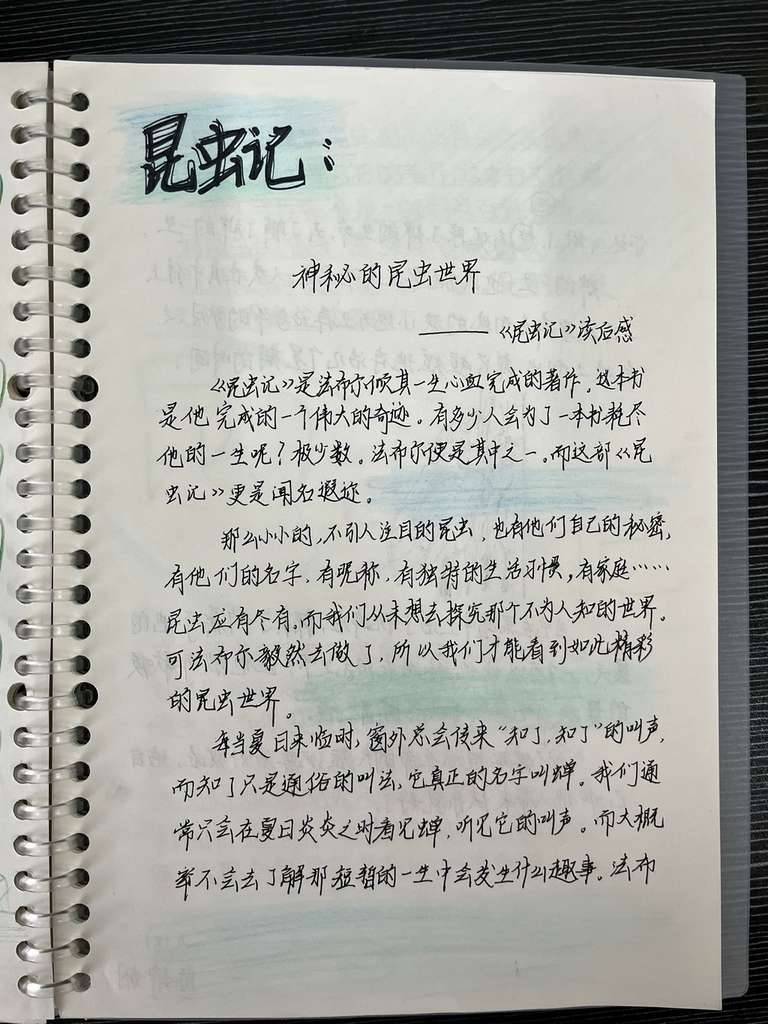 昆虫记：
神秘的昆虫世界
——《昆虫记》读后感
《昆虫记》是法布尔倾其一生心血完成的著作，这本书
是他完成的一个伟大的奇迹。有多少人会为了一本书耗尽
他的一生呢？极少数。法布尔便是其中之一。而这部《昆
虫记》更是闻名遐迩。
那么小小的，不引人注目的昆虫，也有他们自己的秘密，
有他们的名字，有昵称，有独特的生活习惯，有家庭……
昆虫应有尽有。而我们从未想去探究那个不为人知的世界。
可法布尔毅然去做了，所以我们才能看到如此精彩
的昆虫世界。
每当夏日来临时，窗外总会传来“知了，知了”的叫声，
而知了只是通俗的叫法，它真正的名字叫蝉。我们通
常只会在夏日炎炎之时看见蝉，听见它的叫声。而大概
率不会去了解那短暂的一生中会发生什么趣事。法布